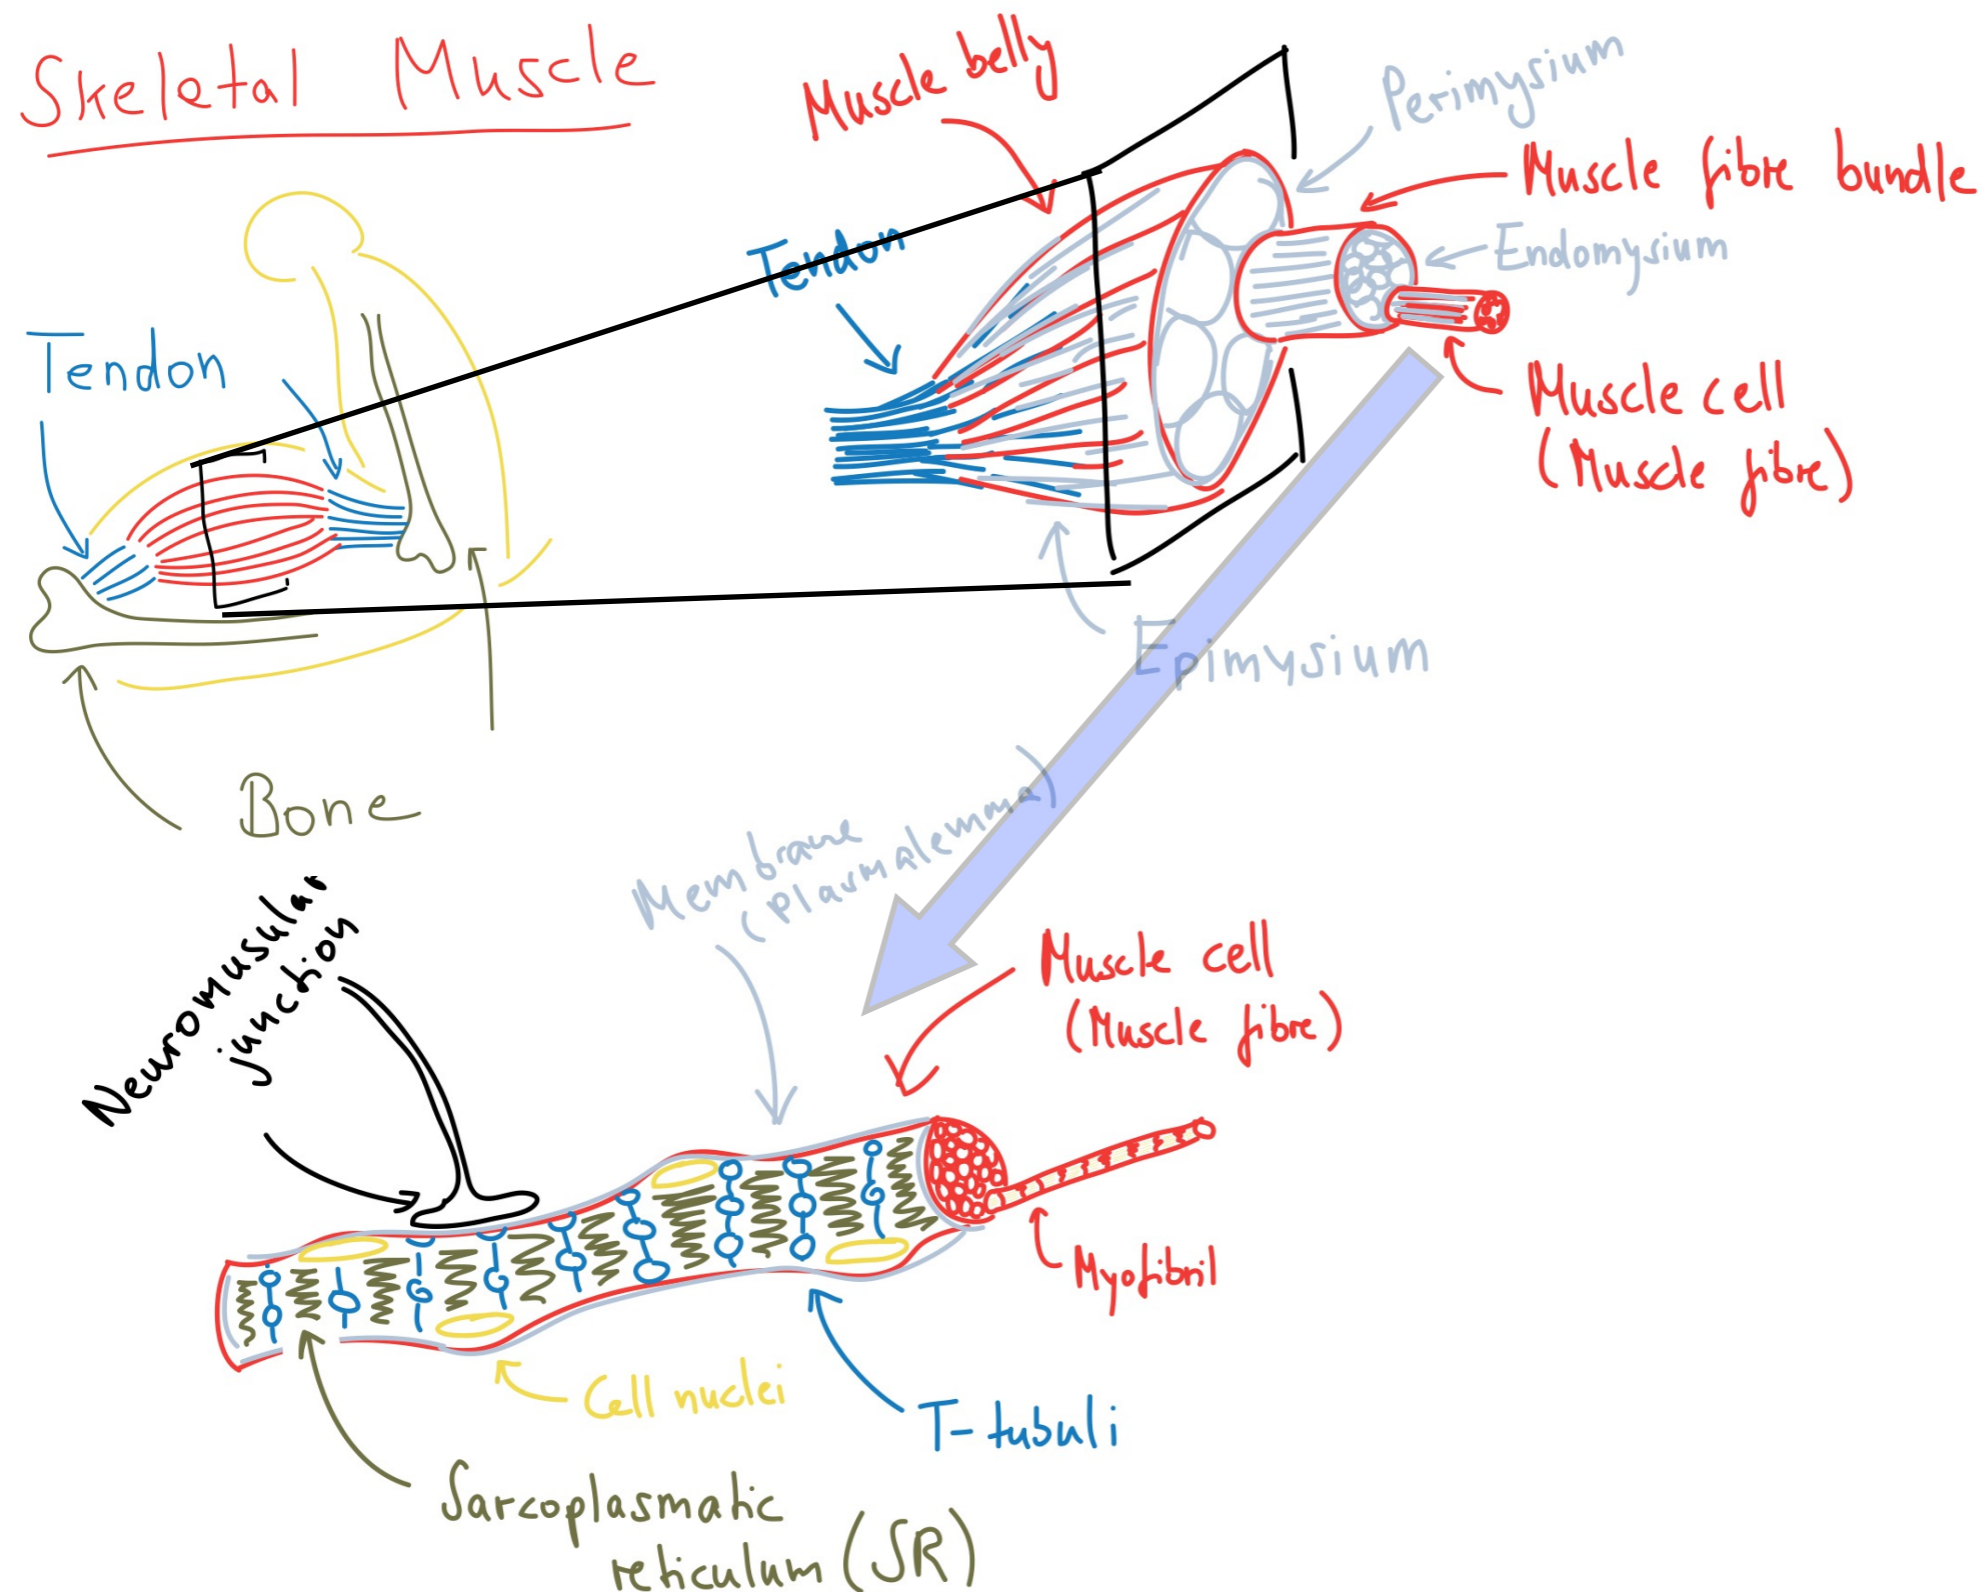 Skeletal Muscle
Muscle belly
Perimysium
Muscle fibre bundle
Endomysium
Tendon
Tendon
Muscle cell
(Muscle fibre)
Epimysium
Bone
Membrane
(Plasmalemma)
Neuromusular
junction
Muscle cell
(Muscle fibre)
Myofibril
Cell nuclei
T-tubuli
Sarcoplasmatic
reticulum (SR)